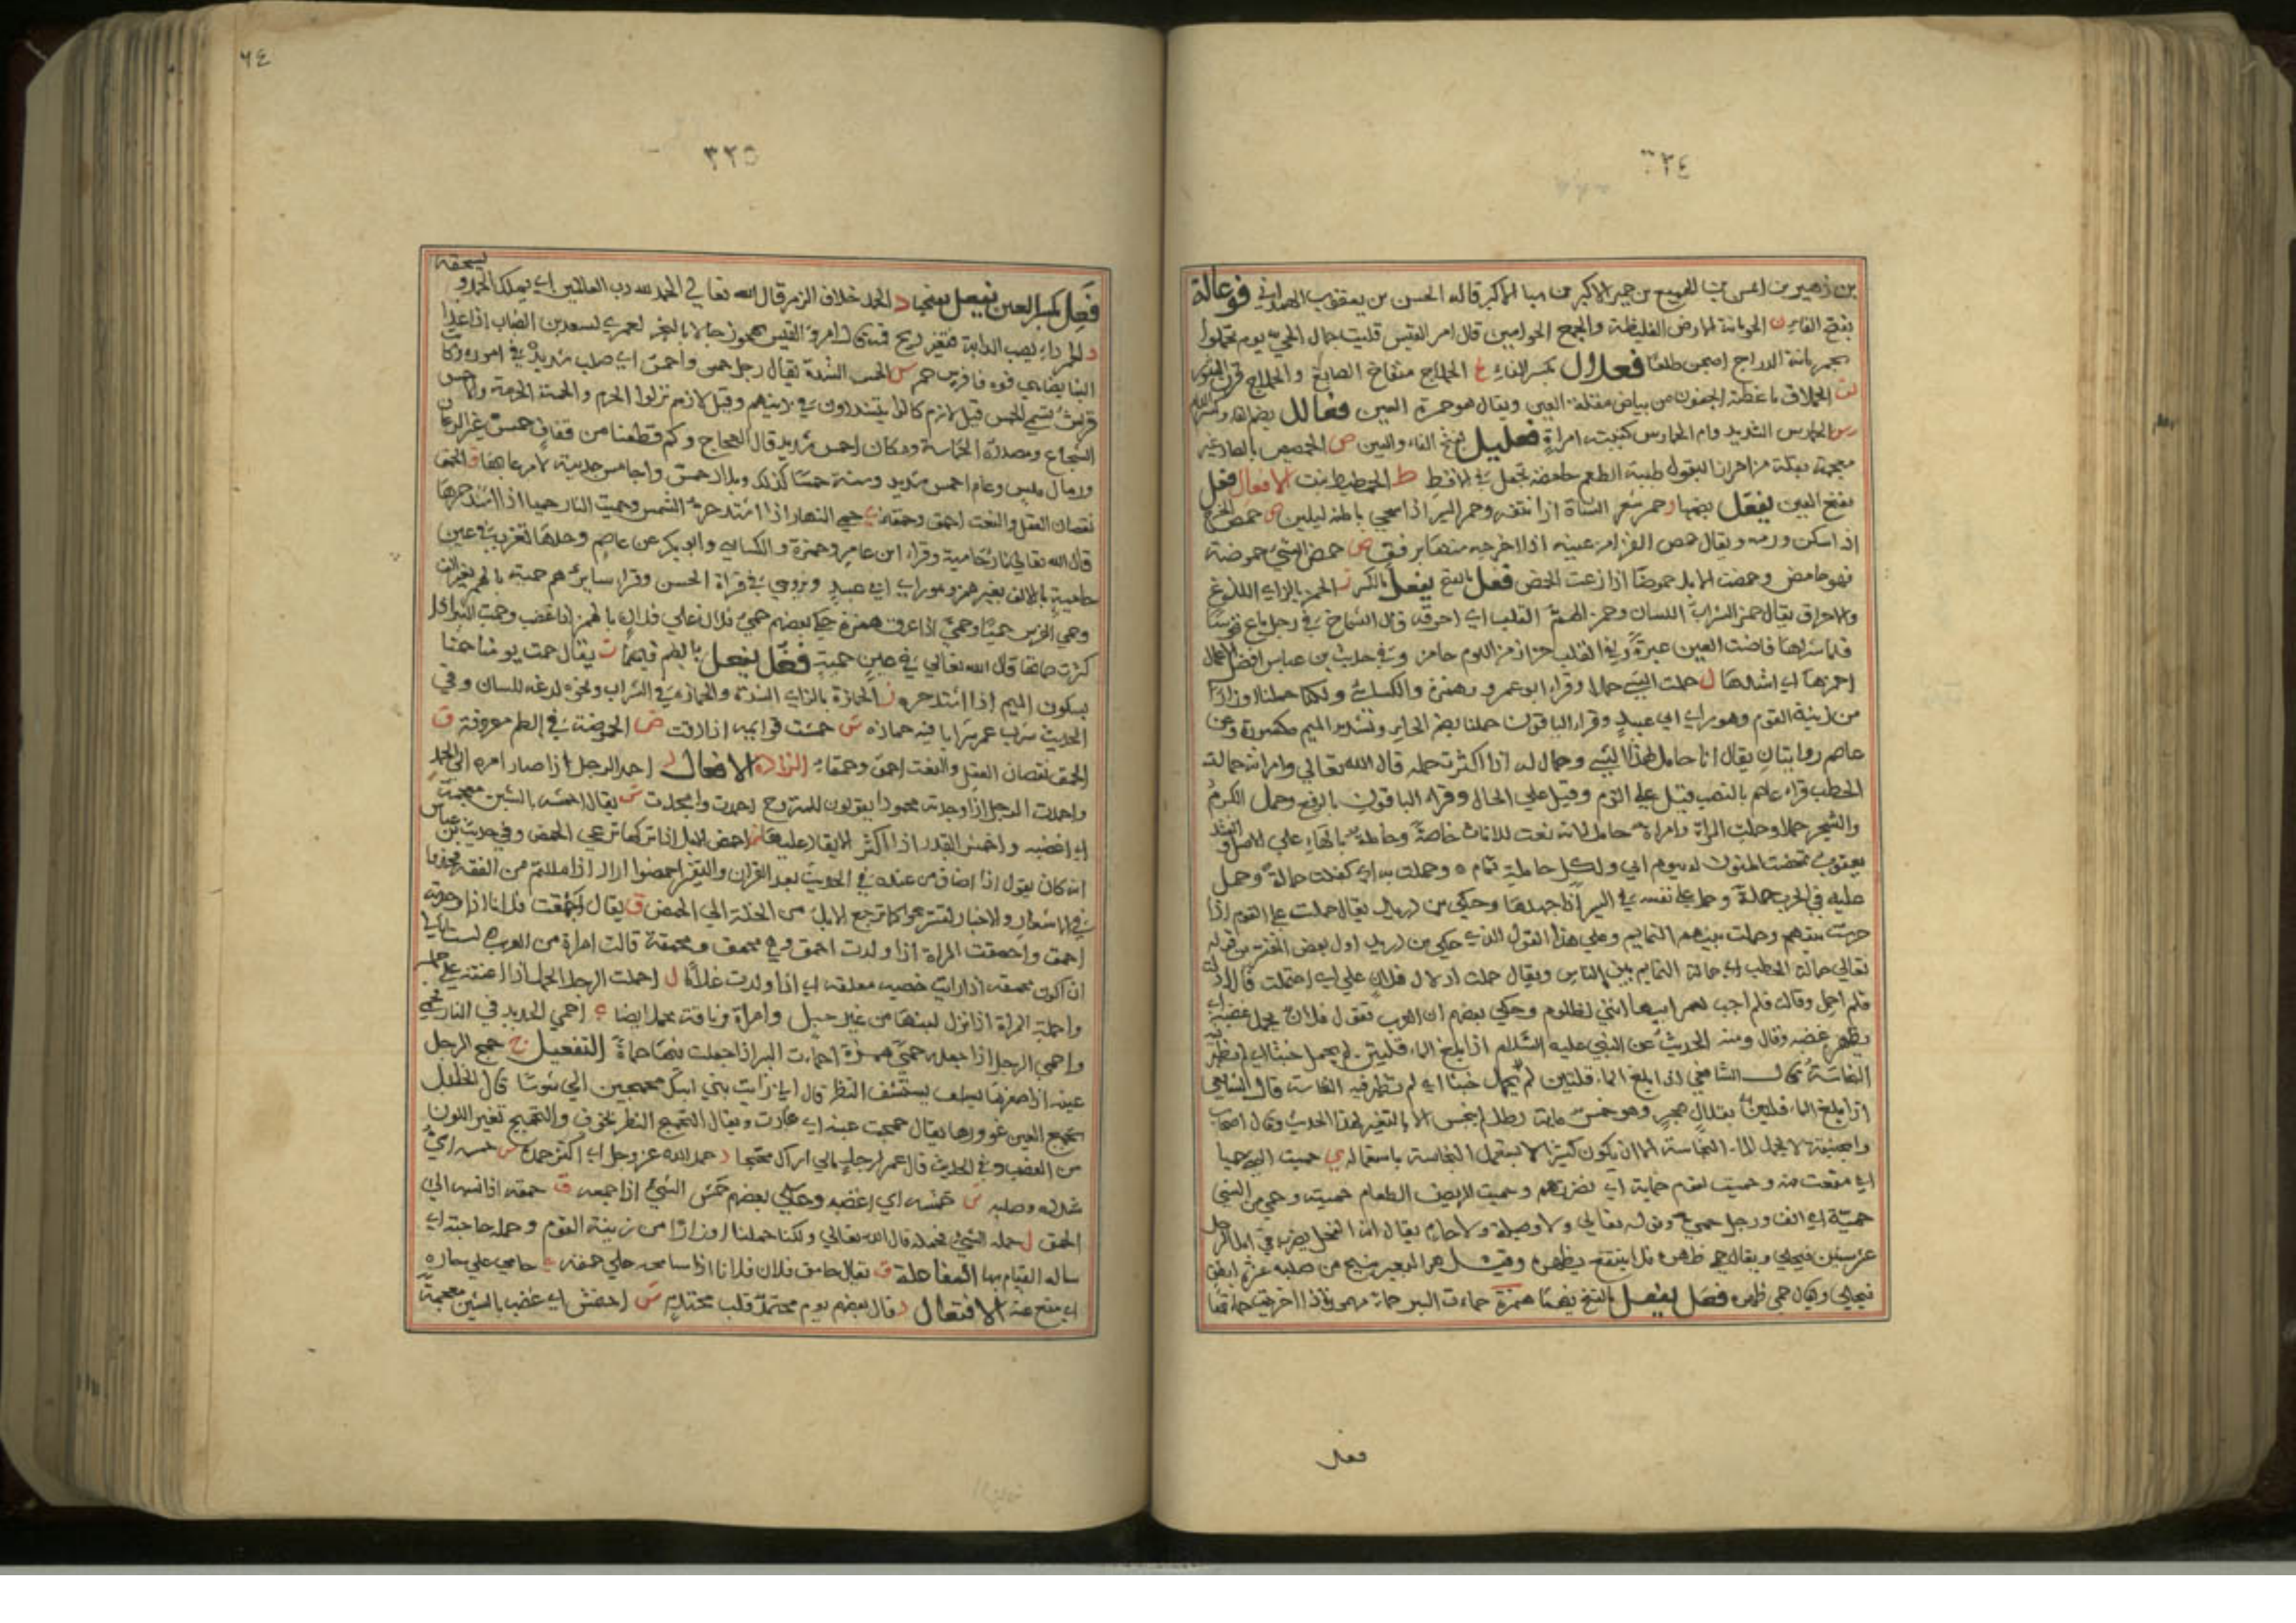 ٣٢٤
بن زهير بن ايمن بن الهميسع بن حمير الاكبر بن سبا الاكبر قاله الحسن بن يعقوب الهمداني فوعالة
بفتح الفاء ن الحومانة الارض الغليظة والجمع الحوامين قال امرؤ القيس جمال الحي يوم تحملوا
الدراج فعلال بكسر الفاء ج الحملاج منفاخ الصايغ والحملاج قرن الثور
ق الحملاق ما غطته الجفون من بياض مقلة العين ويقال هو حمرة العين فعالل بضم الفاء وكسر اللام
رس الحمارس الشديد وام الحمارس كنيت امراة فعليل بفتح الفاء والعين ص الحمصيص بالصاد غير
معجمة بقلة من احرار البقول طيبة الطعم حامضة تجعل في الاقط ط الحمطيط نبت الافعال فعل
بفتح العين يفعل بضمها ر حمر شعر الشاة اذا نتفه وحمر السير اذا سحى باطنه ليلين ص حمص الجرح
اذا سكن ورمه ويقال حمص القذا من عينه اذا اخرجه منها برفق ض حمض الشيء حموضة
فهو حامض وحمضت الابل حموضا اذا رعت الحمض فعل بالفتح يفعل بالكسر ز الحمز بالزاي اللذوع
والاحراق يقال حمز الشراب اللسان وحمز الهم القلب اي احرقه قال الشماخ في رجل باع قوسا
فلما شراها فاضت العين عبرة وفي القلب حزاز من اللوم حامز وفي حديث بن عباس افضل الاعمال
احمزها اي اشدها ل حملت الشيء حملا وقراء ابو عمرو وحمزة والكسائي ولكنا حملنا اوزارا
من زينة القوم وهو راي ابي عبيد وقراء الباقون حملنا بضم الحاء وتشديد الميم مكسورة وعن
عاصم روايتان يقال انا حامل لهذا الشيء وحمال له اذا اكثرت حمله قال الله تعالى وامراته حمالة
الحطب قراء عاصم بالنصب فقيل على الذم وقيل على الحال وقراء الباقون بالرفع وحمل الكرم
والشجر حملا وحملت المراة وامراة حامل لانه نعت للاناث خاصة وحاملة بالهاء على الاصل وانشد
يعقوب تمخضت المنون له بيوم انى ولكل حاملة تمام ه وحملت به اي كفلت حمالة وحمل
عليه في الحرب حملة وحمل على نفسه في السير اذا جهدها وحكى بن دريد يقال حملت على القوم اذا
حرشت بينهم وحملت بينهم النمايم وعلى هذا القول الذي حكى بن دريد اول بعض المفسرين قوله
تعالى حمالة الحطب اي حمالة النمايم بين الناس ويقال حملت ادلال فلان علي اي احتملت قال
فلم احمل وقال فلم اجب لعمر ابيها انني لظلوم وحكى بعضهم ان العرب تقول فلان يحمل غضبه اي
يظهر غضبه وقال ومنه الحديث عن النبي عليه السلام اذا بلغ الماء قلتين لم يحمل خبثا اي لم تظهر فيه
النجاسة قال الشافعي اذا بلغ الماء قلتين لم يحمل خبثا اي لم تظهر فيه النجاسة قال الشافعي
اذا بلغ الماء قلتين بقلال هجر وهو خمس ماية رطل لم ينجس الا بالتغير لهذا الحديث وقال اصحاب
ابي حنيفة لا يحمل الماء النجاسة الا ان يكون كثيرا لا يستعمل النجاسة باستعماله ي حميت الشيء حميا
اي منعت منه وحميت القوم حماية اي نصرتهم وحميت المريض الطعام حميته وحمي من الشيء
حمية اي انف ورجل حمي وقوله تعالى ولا وصيلة ولا حام يقال انه الفحل يضرب في ابل الرجل
عشر سنين فيخلى ويقال حمى ظهره فلا ينتفع بظهره وقيل هو البعير ينتج من صلبه عشرة ابطن
فيخلى ويقال حمى ظهره فعل يفعل بالفتح فيهما همزة حماءت البير حماة مهموز اذا اخرجت حماتها
فعل
٦٤
٣٢٥
فعل بكسر العين يفعل بفتحها د الحمد خلاف الذم قال الله تعالى الحمد لله رب العالمين اي يملك الحمد و يستحقه
ر الحمر داء يصيب الدابة فتغير ريح فمه قال امرؤ القيس يهجو رجلا بالبخر لعمري لسعد بن الضباب اذا غدا
الينا فا فرس حمر س الحمس الشدة يقال رجل حمس واحمس اي صلب شديد في امور وكانت
قريش تسمى الحمس قيل لانهم كانوا يتشددون في دينهم وقيل لانهم نزلوا الحرم والحمسة الحرمة والاحمس
الشجاع ومصدره الحماسة ومكان احمس شديد قال العجاج وكم قطعنا من قفاف حمس غبر الرعان
ورمال دهس وعام احمس شديد وسنة حمسا كذلك وبلاد حمس واحامس جدبة لا مرعا بها ق الحمق
نقصان العقل والنعت احمق وحمقاء ي حمي النهار اذا اشتد حره الشمس وحميت النار حميا اذا اشتد حرها
قال الله تعالى نار حامية وقراء ابن عامر وحمزة والكسائي وابو بكر عن عاصم وجدها تغرب في عين
حامية بالالف بغير همز وهو راي ابي عبيد ويروى في قراة الحسن وقراء سايرهم حمية بالهمز بغير الف
وحمي الفرس حميا وحمي اذا عرق همزة حكى بعضهم حمي فلان على فلان بالهمز اذا غضب وحميت البير اذا
كثرت حماتها قال الله تعالى في عين حمية فعل يفعل بالضم فيهما ت يقال حمت يومنا حمتا
بسكون الميم اذا اشتد حره ز الحمازة بالزاي الشدة والحمازة في الشراب ونحوه لدغه للسان وفي
الحديث شرب عمر شرابا فيه حمازة ش حمشت قوايمه اذا دقت ض الحموضة في الطعم معروفة ق
الحمق نقصان العقل والنعت احمق وحمقاء الزيادة الافعال د احمد الرجل اذا صار امره الى الحمد
واحمدت الرجل اذا وجدته محمودا يقولون للمتزوج احمدت وامجدت ش يقال احمشه بالشين معجمة
اي اغضبه واحمش القدر اذا اكثر الايقاد عليها ض احمض الابل اذا تركها ترعى الحمض وفي حديث بن عباس
انه كان يقول اذا افاض من عنده في الحديث بعد القران والتفسير احمضوا اراد اذا مللتم من الفقه فخذوا
في الاشعار والاخبار لتستريحوا كما ترجع الابل من الخلة الى الحمض ق يقال احمقت فلانا اذا وجدته
احمق واحمقت المراة اذا ولدت احمق فهي محمق ومحمقة قالت امراة من العرب لست ابالي
ان اكون محمقه اذا رايت خصيه معلقه اي اذا ولدت غلاما ل احملت الرجل الحمل اذا اعنته على حمله
واحملت المراة اذا نزل لبنها من غير حبل وامراة وناقة محمل ايضا ي احمى الحديد في النار فحمي
واحمى الرجل اذا جعله حمى همزة احماءت البير اذا جعلت فيها حماة التفعيل ج حمج الرجل
عينه اذا صغرها يستشف النظر قال
تحميج العين غوورها يقال حمجت عينه اي غارت ويقال التحميج النظر بخوف والتحميج تغير اللون
من الغضب وفي الحديث قال عمر لرجل مالي اراك محمجا د حمد الله عز وجل اي اكثر حمده س حمسه اي
شدده وصلبه ش حمشه اي اغضبه وحكى بعضهم حمش الشيء اذا جمعه ق حمقه اذا نسبه الى
الحمق ل حمله الشيء فحمله قال الله تعالى ولكنا حملنا اوزارا من زينة القوم وحمله حاجته اي
ساله القيام بها المفاعلة ق يقال حامق فلان فلانا اذا ساعده على حمقه ي حامى على جاره
اي منع عنه الافتعال د قال بعضهم يوم محتمد قلب محتدم ش احتمش اي غضب بالشين معجمة